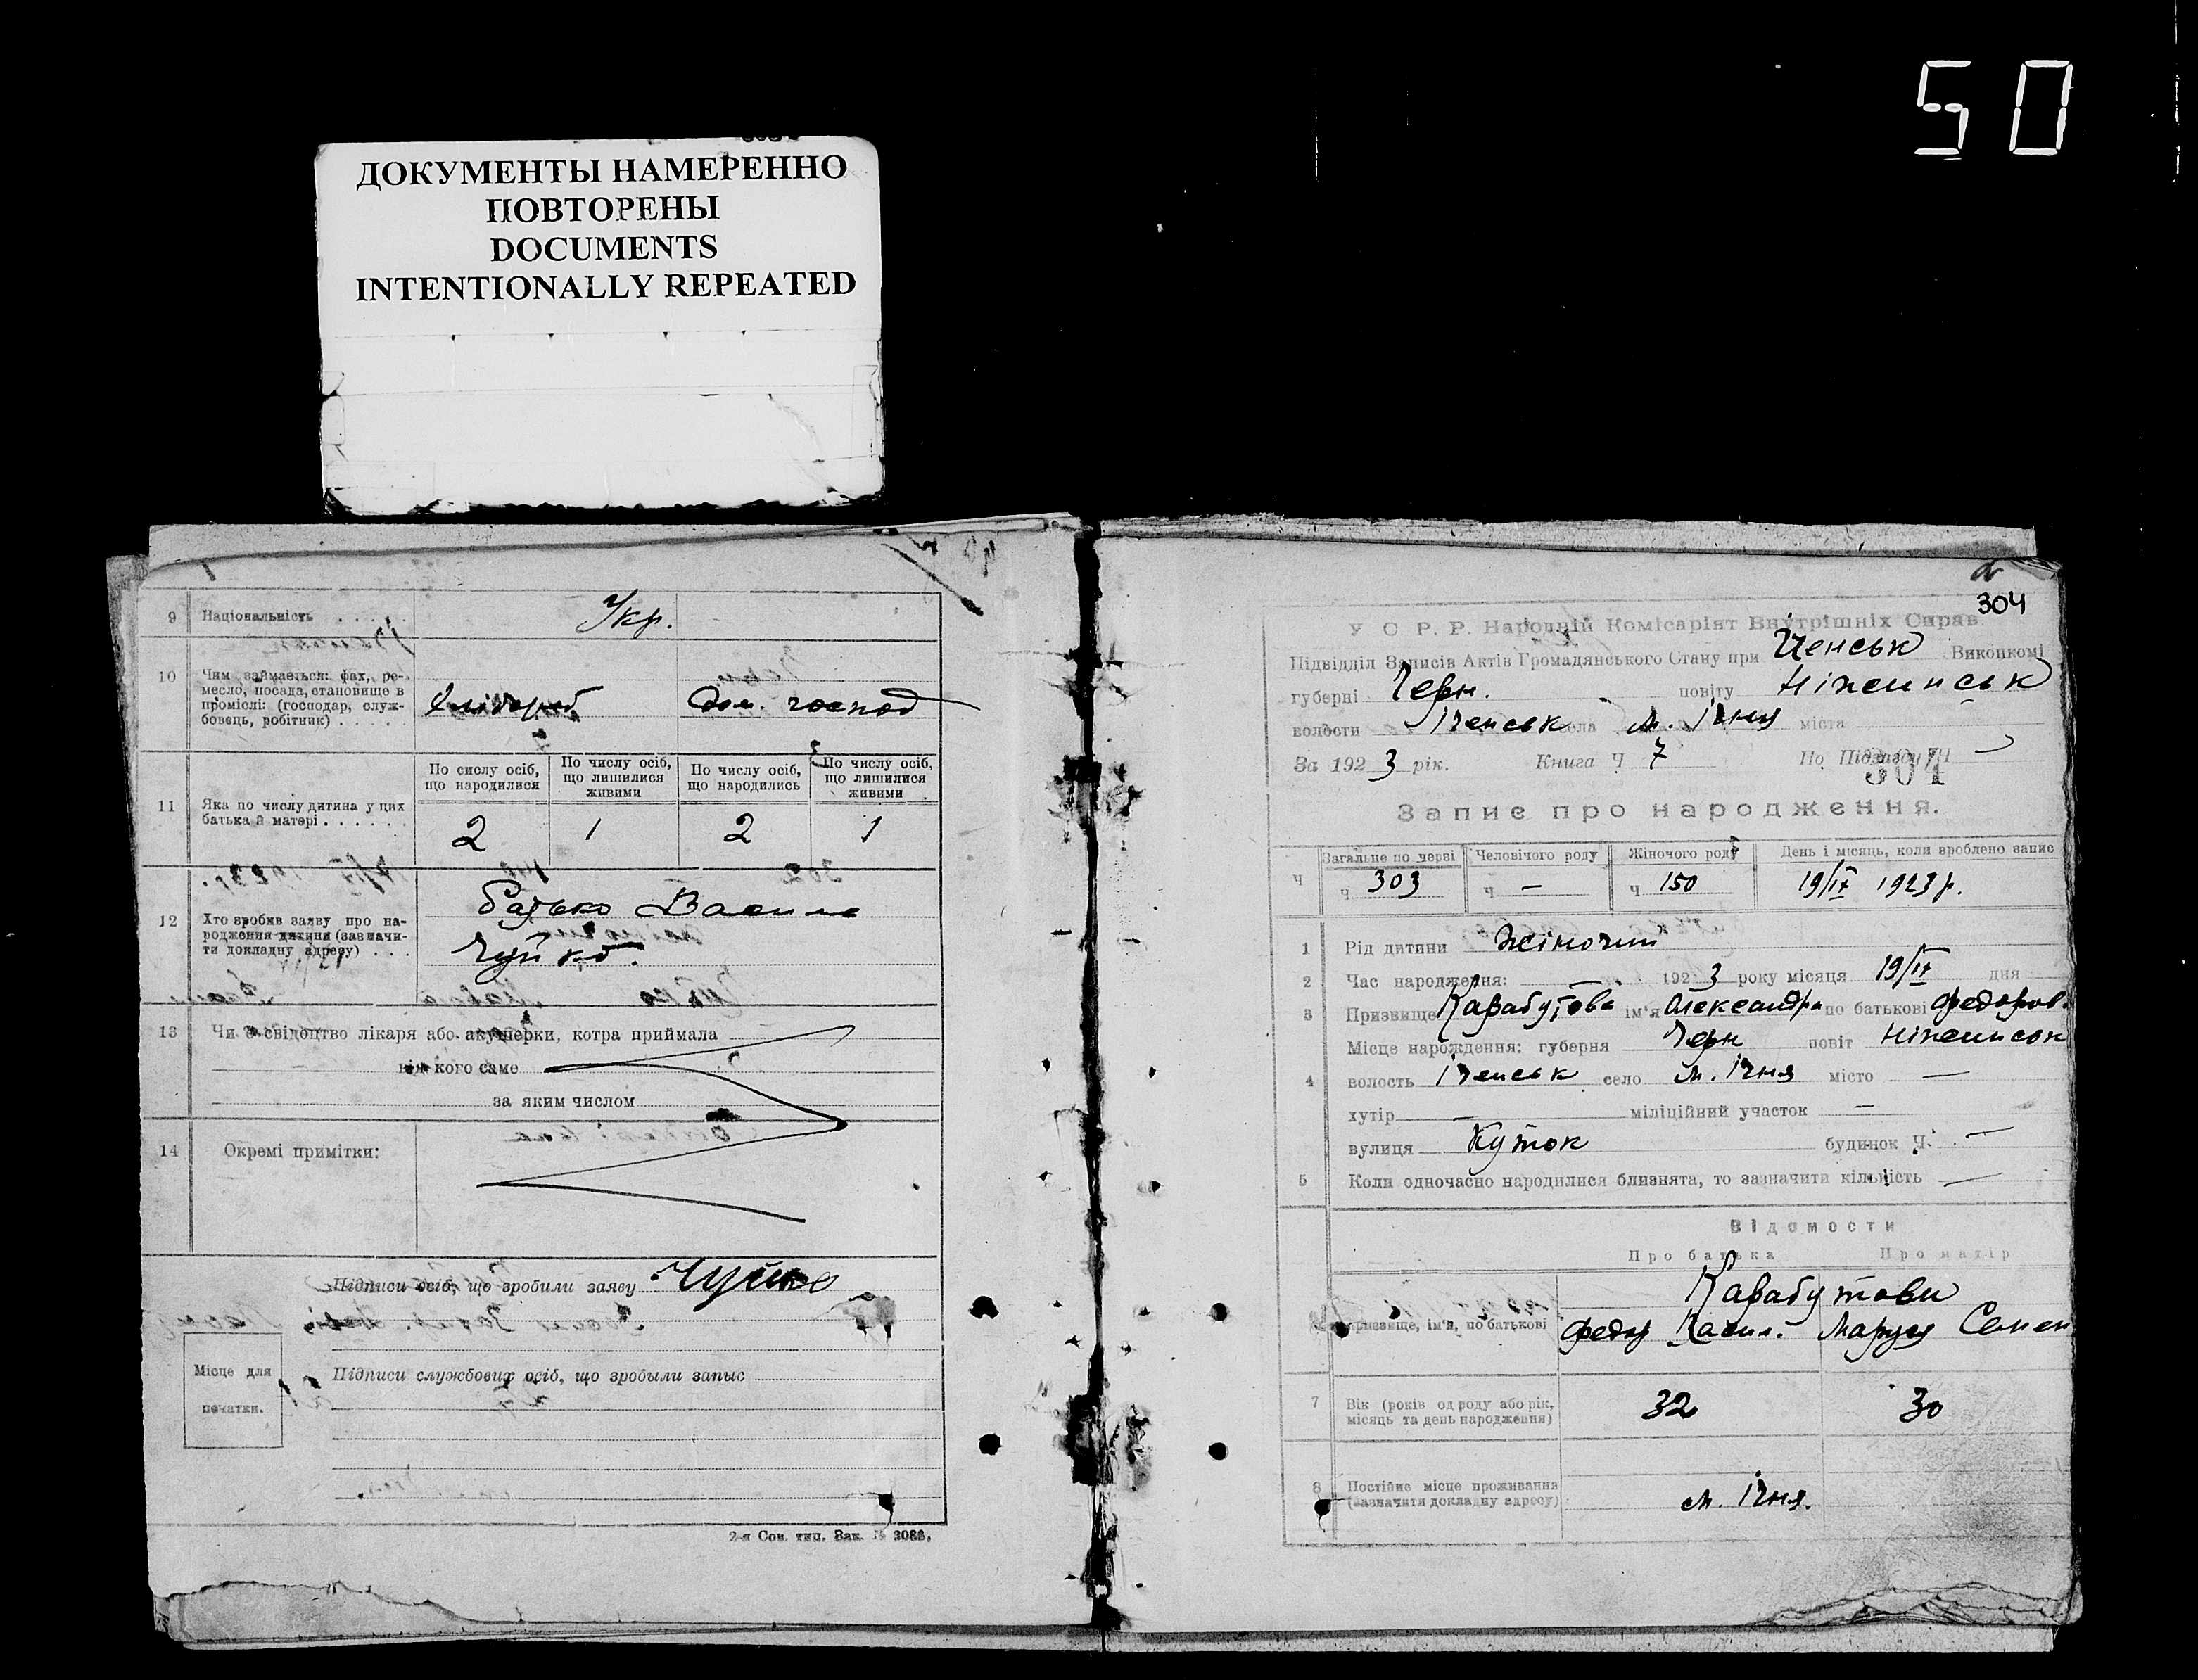 50
ДОКУМЕНТЫ НАМЕРЕННО
ПОВТОРЕНЫ
DOCUMENTS
INTENTIONALLY REPEATED
9 Національність . . . . . Укр.
10 Чим займається: фах, ре-
месло, посада, становище в
промислі: (господар, служ-
бовець, робітник) . . . . Хлібороб Дом. господ
11 Яка по числу дитина у цих
батька й матері . . . . . .
По числу осіб, що народилися По числу осіб, що лишилися живими По числу осіб, що народились По числу осіб, що лишилися живими
2 1 2 1
12 Хто зробив заяву про на-
родження дитини (зазначи-
ти докладну адресу) . . .
батько Василь
Чуйко.
13 Чи є свідоцтво лікаря або акушерки, котра приймала
від кого саме
за яким числом
14 Окремі примітки:
Підписи осіб, що зробили заяву Чуйко
Місце для
печатки.
Підписи службових осіб, що зробыли запыс
2-я Сов. тип. Зак. № 3088.
304
У С Р. Р. Народній Комісаріят Внутрішніх Справ
Підвідділ Записів Актів Громадянського Стану при Іченськ Виконкомі
губерні Черн. повіту Ніжинськ
волости Іченськ села м. Ічня міста
За 1923 рік. Книга Ч 7 По Підвідділу Ч —
304
Запис про народження.
Загальне по черві Человічого роду Жіночого роду День і місяць, коли вроблено запис
Ч ч 303 ч — ч 150 19/IV 1923 р.
1 Рід дитини Жіночий
2 Час народження: 1923 року місяця 19/IV дня
3 Призвище Карабутова ім'я Олександра по батькові Федоров.
4 Місце нарождення: губерня Черн повіт Ніжинськ
волость Іченськ село м. Ічня місто —
хутір — міліційний участок —
вулиця Куток будинок Ч. —
5 Коли одночасно народилися близнята, то зазначити кількість —
Відомости
Про батька Про матір
Карабутови
призвище, ім'я, по батькові Федор Васил. Маруся Семен
7 Вік (років од роду або рік,
місяць та день народження) 32 30
8 Постійне місце проживання
(зазначити докладну адресу) м. Ічня.